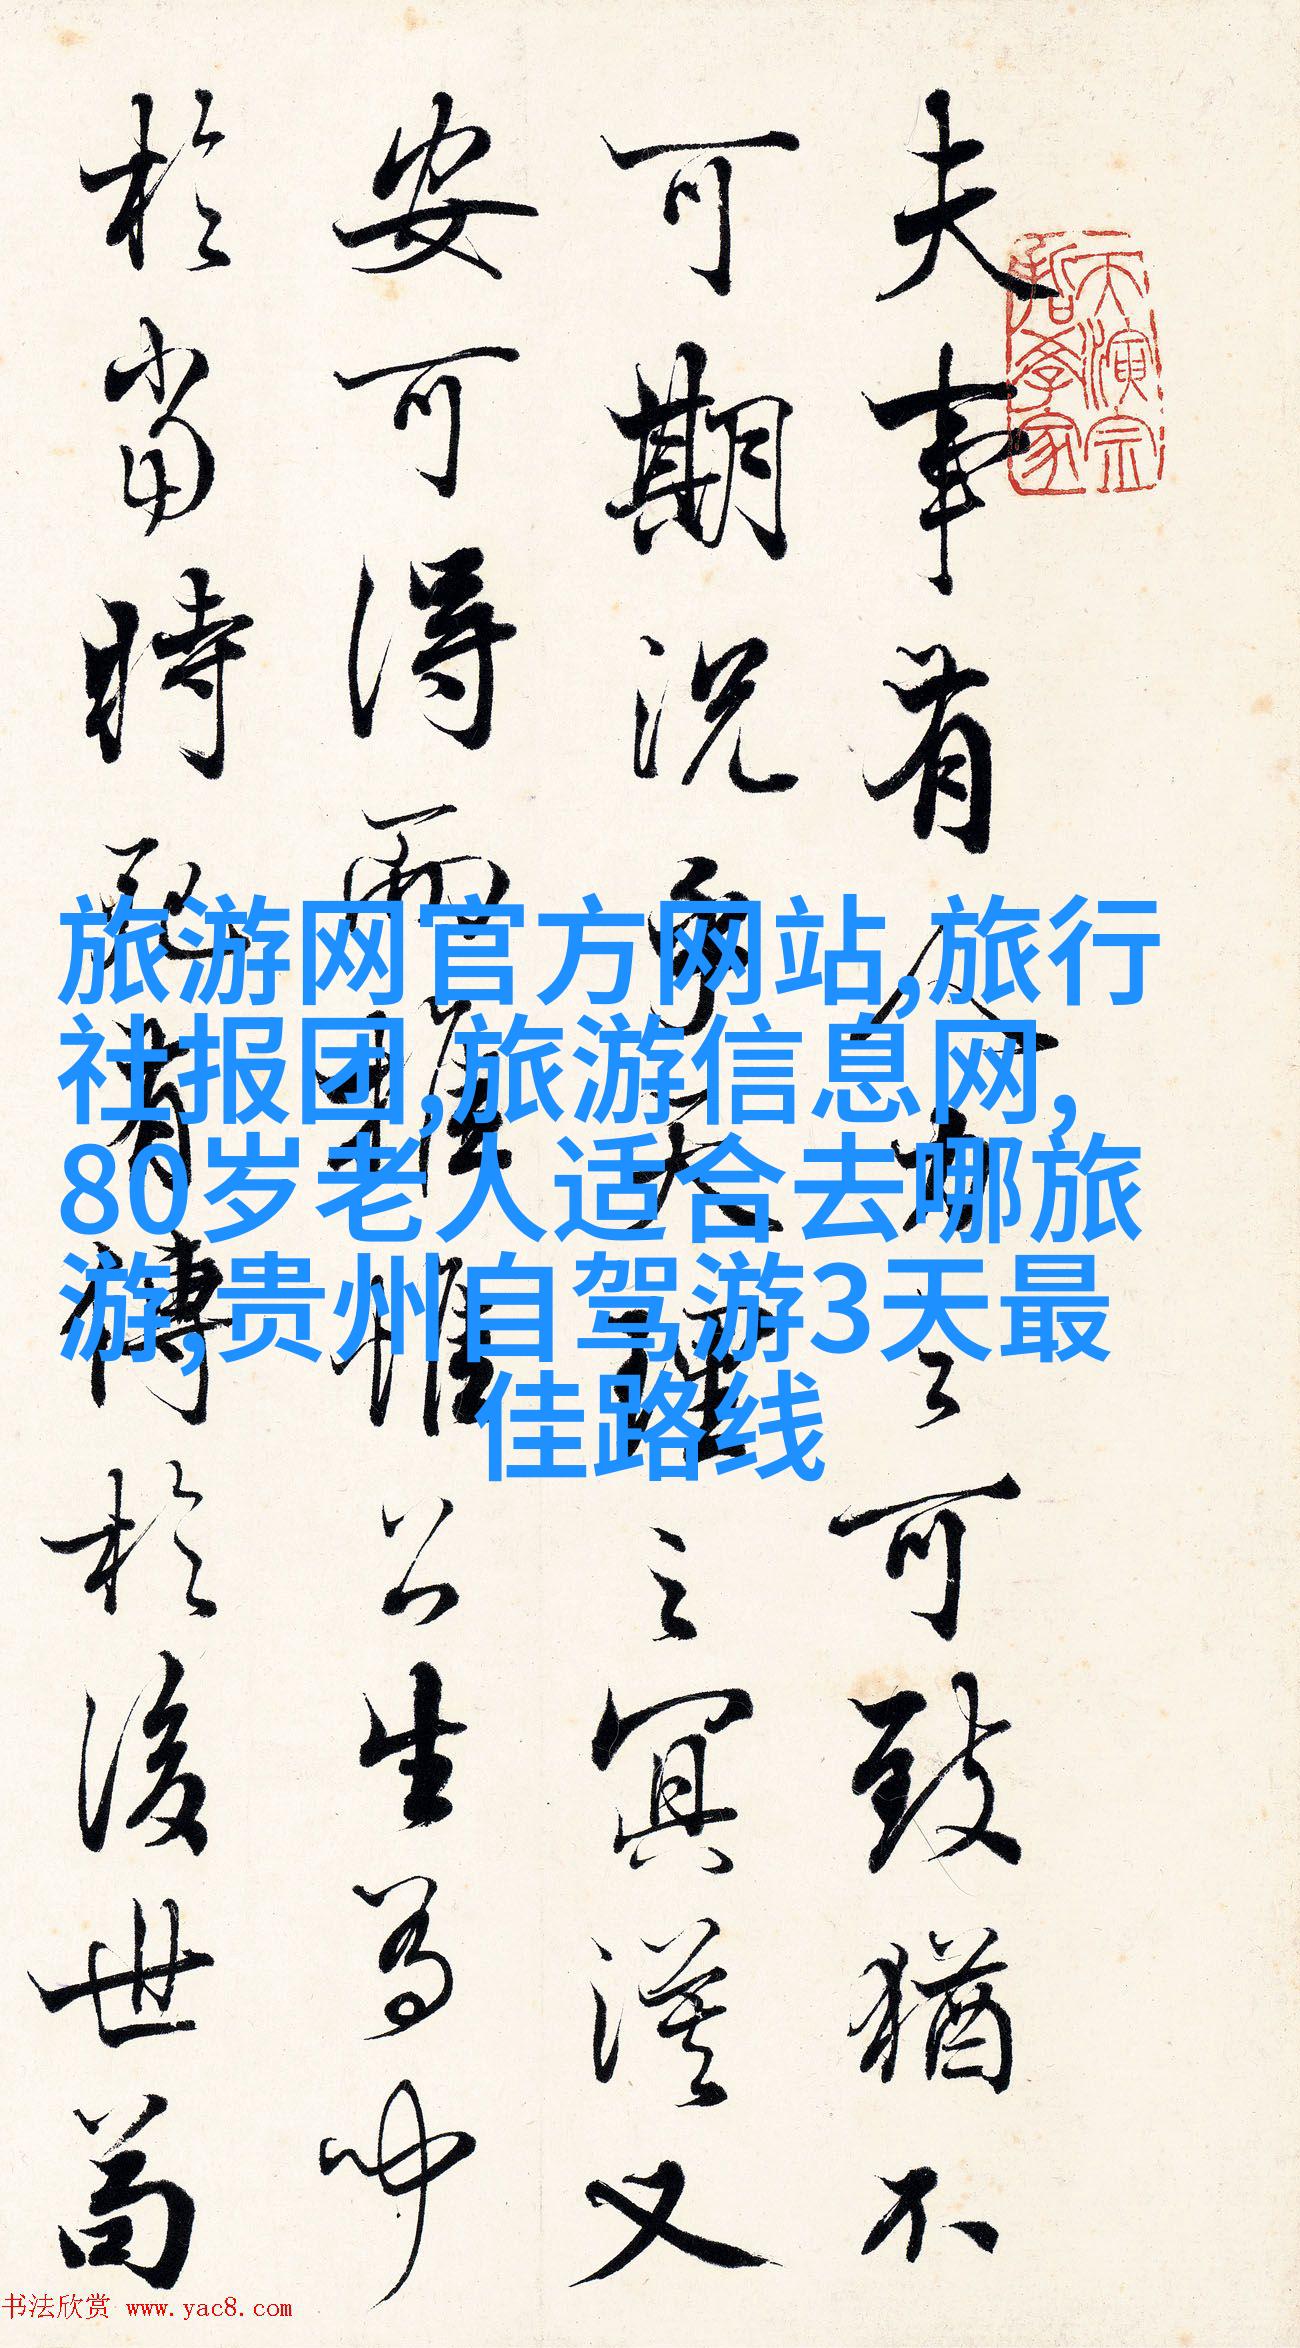 夫事有人力之可致猶不
可期況乎天理之冥漠又
安可得而推惟公生為
於當時死有傳於後世苟
天演宗
哲學家
旅游网官方网站,旅行
社报团,旅游信息网,
80岁老人适合去哪旅
游,贵州自驾游3天最
佳路线
书法欣赏 www.yac8.com